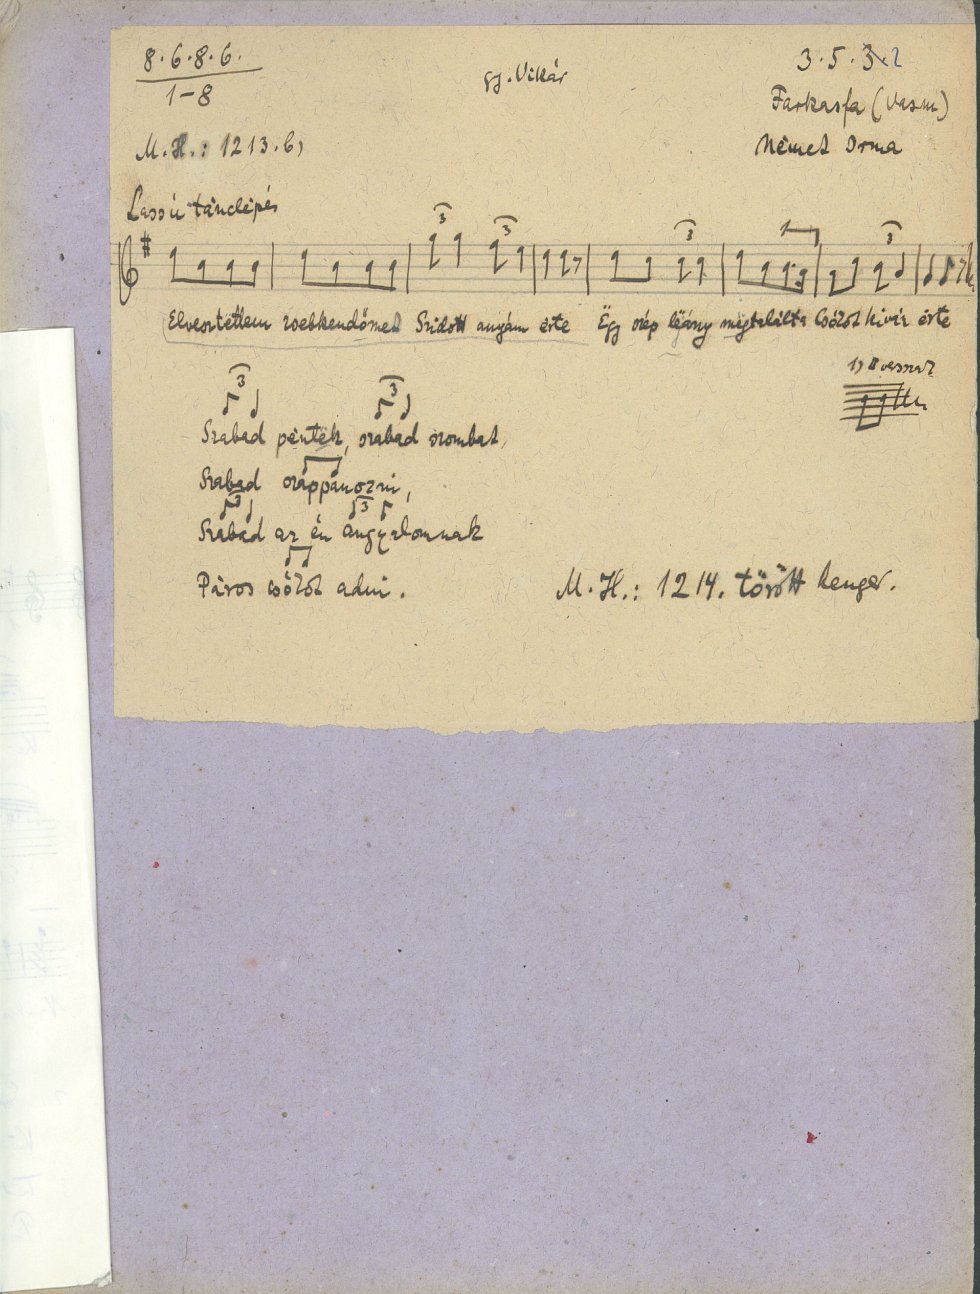 8.6.8.6.
1-8
gj. Vikár
3.5.3.2
Farkasfa (Vasm)
Német Irma
M.H.: 1213.b,
Lassú tánclépés
3 3 3 3
Elvesztettem zsebkendőmet Szidott anyám érte Ëgy szép lëjány mëgtalálta Csókot kiván érte
1, vessza?
3 3
Szabad péntek, szabad szombat,
Szabad száppanozni,
3 3
Szabad az én angyalomnak
Páros csókot adni.
M.H.: 1214. törött henger.